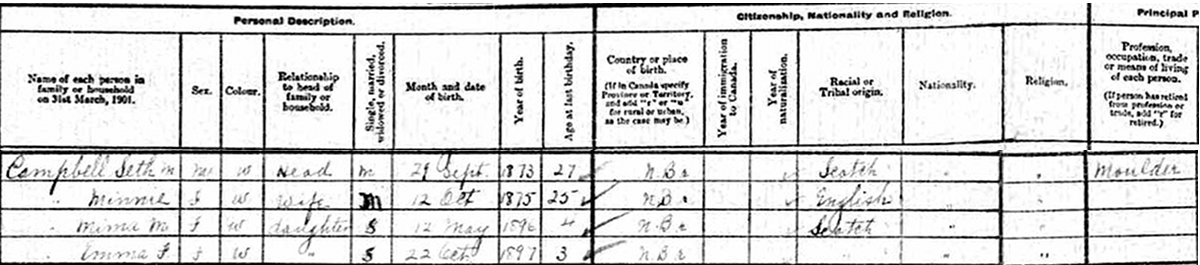 Personal Description. Citizenship, Nationality and Religion. Principal P
Name of each person in family or household on 31st March, 1901.
Sex.
Colour.
Relationship to head of family or household.
Single, married, widowed or divorced.
Month and date of birth.
Year of birth.
Age at last birthday.
Country or place of birth.
(If in Canada specify Province or Territory, and add "r" or "u" for rural or urban, as the case may be.)
Year of immigration to Canada.
Year of naturalization.
Racial or Tribal origin.
Nationality.
Religion.
Profession, occupation, trade or means of living of each person.
(If person has retired from profession or trade, add "r" for retired.)
Campbell Seth M m w Head m 29 Sept 1873 27 N.B r Scotch " " Moulder
" Minnie f w wife m 12 Oct 1875 25 N.B r English " "
" M. f w daughter s 12 May 1896 4 N.B r Scotch " "
" Emma F. f w " s 22 Oct 1897 3 N.B r " " "